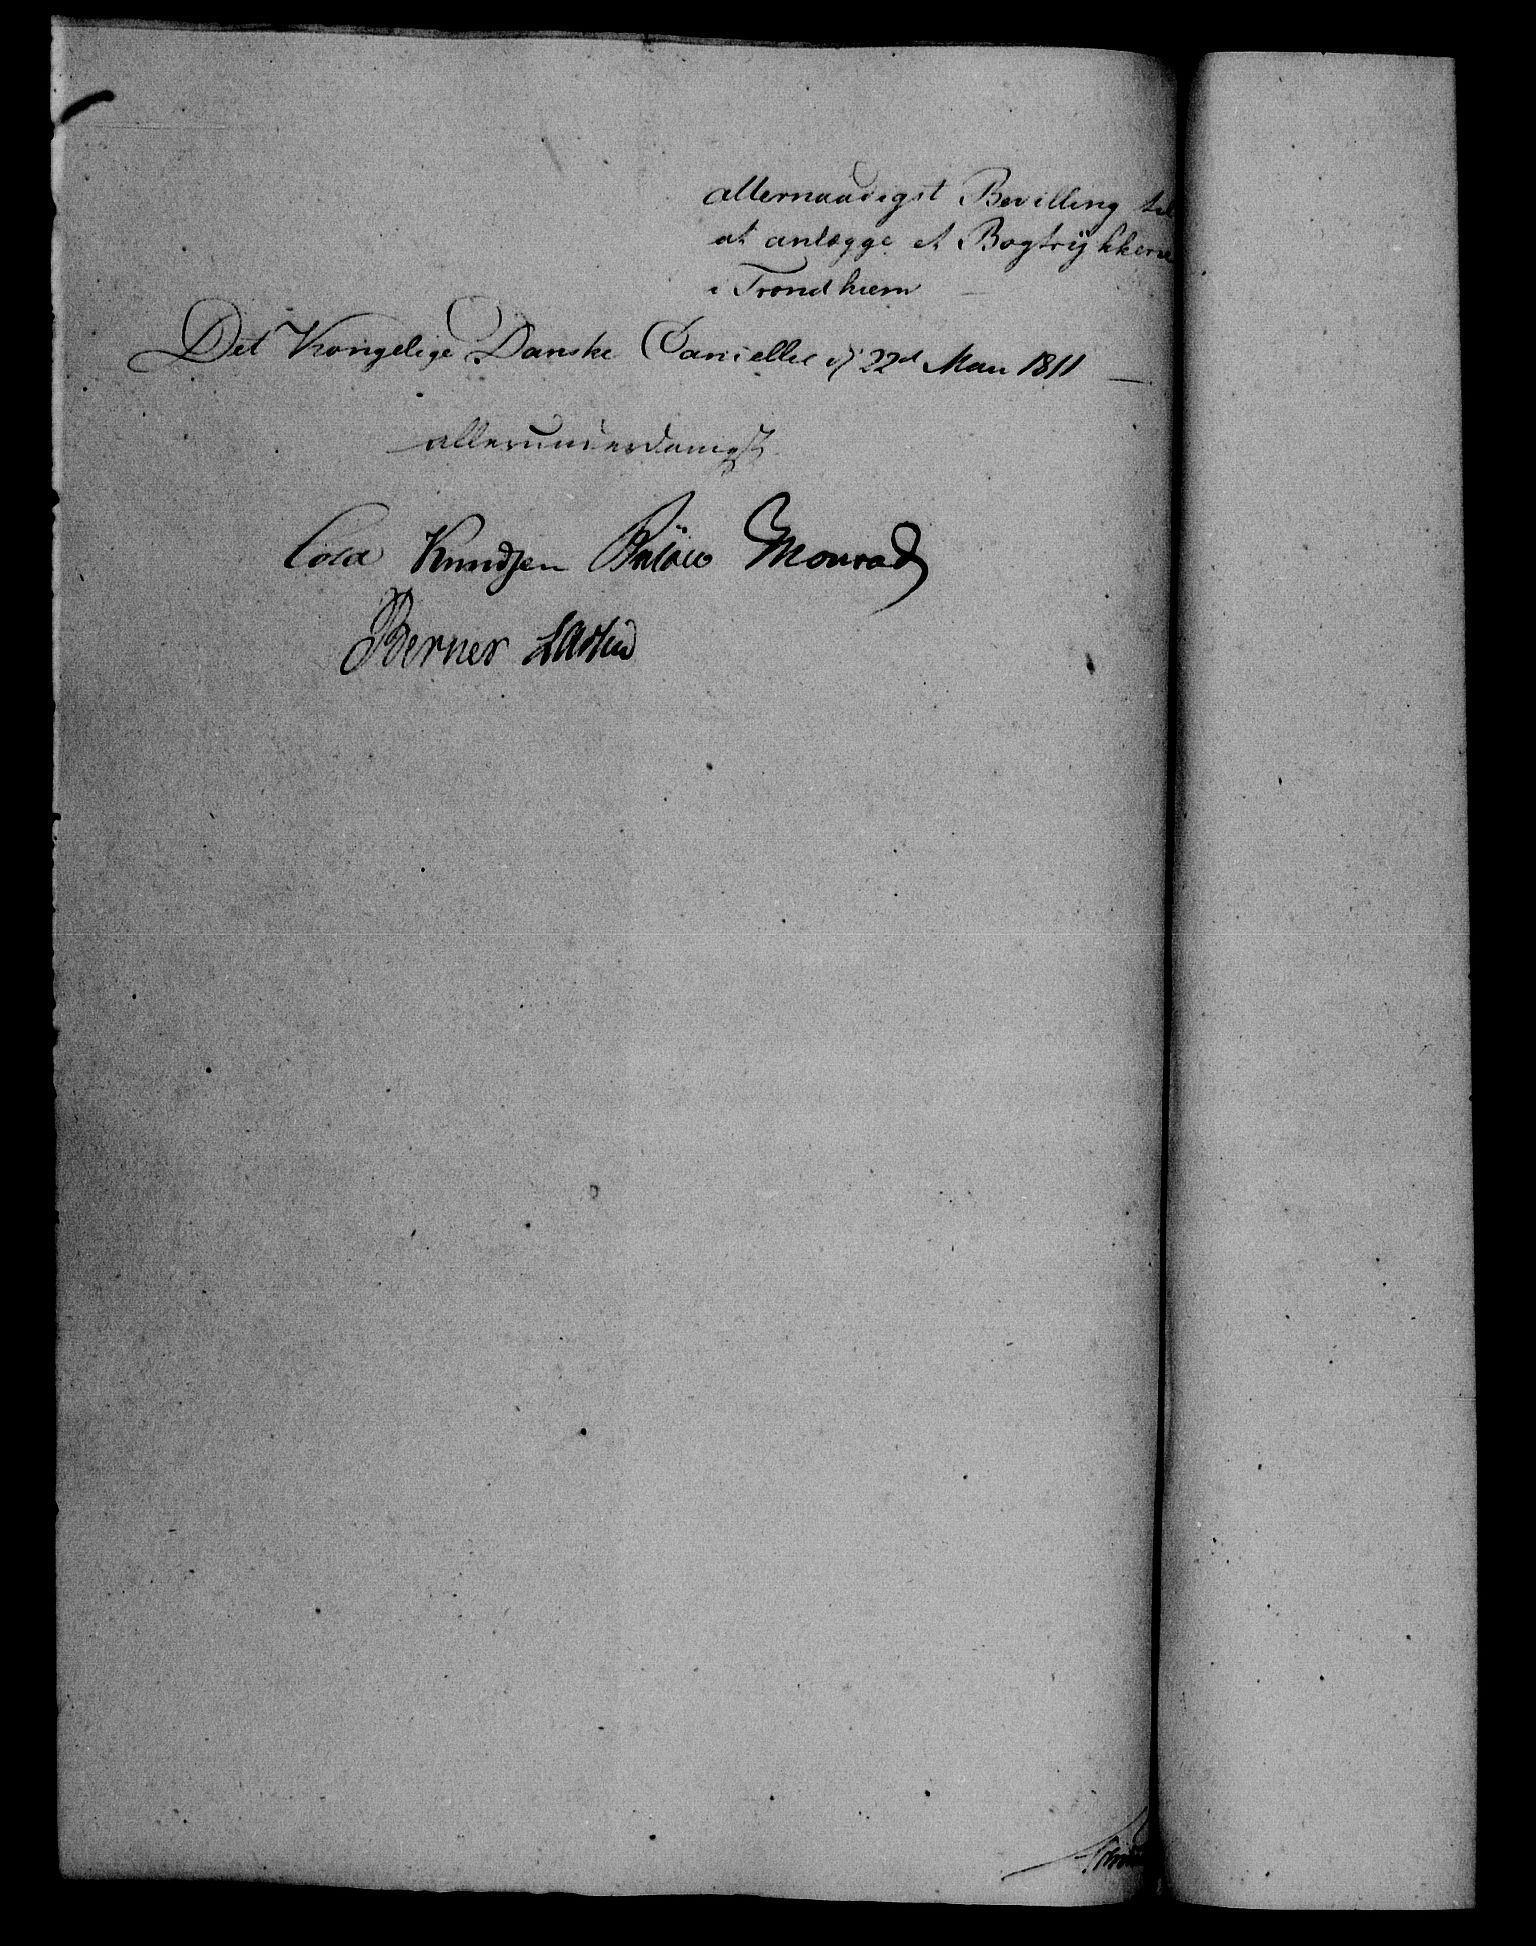 allernaadigst Bevilling til
at anlægge et Bogtrÿkkerie
i Trondhiem
Det Kongelige Danske Cancellie d 22d Mau 1811
allerunderdanigst
Cold Knudsen Bülow Monrad
Berner Lassen